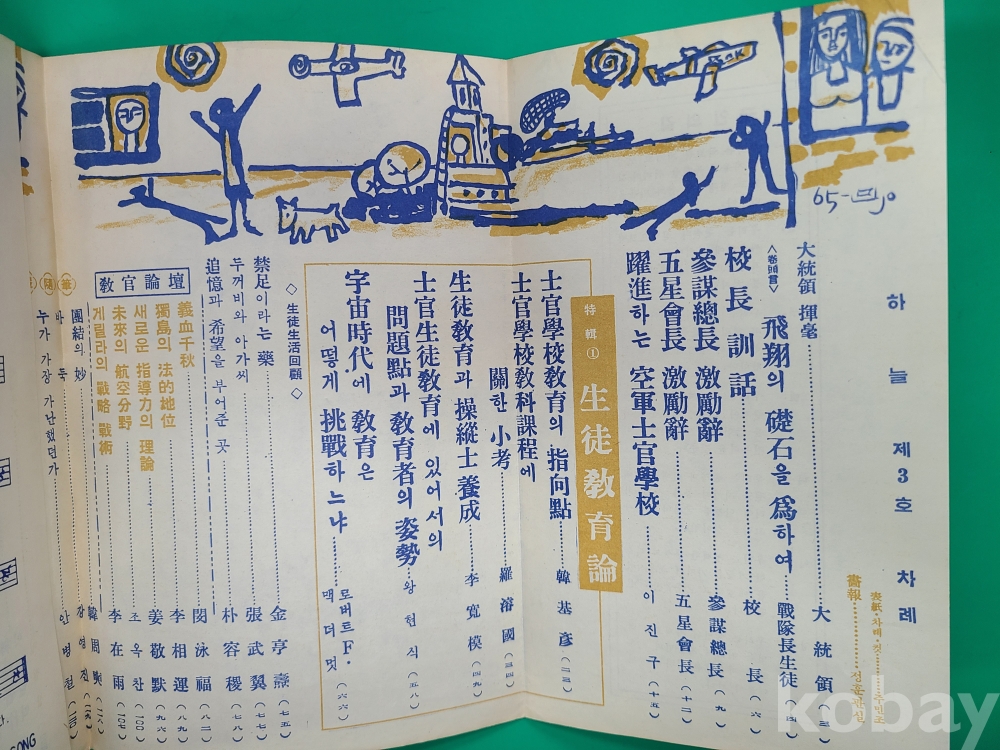 하늘 제3호 차례
表紙·차례·컷
畵報 정훈관실
大統領 揮毫 大統領 (三)
<卷頭言> 飛翔의 礎石을 爲하여 戰隊長生徒 (五)
校長 訓話 校長 (六)
參謀總長 激勵辭 參謀總長 (九)
五星會長 激勵辭 五星會長 (十二)
躍進하는 空軍士官學校 이진구 (十五)
特輯① 生徒敎育論
士官學校敎育의 指向點 韓基彦 (二三)
士官學校敎科課程에
關한 小考 羅濬國 (三四)
生徒敎育과 操縱士 養成 李寬模 (四九)
士官生徒敎育에 있어서의
問題點과 敎育者의 姿勢 왕현식 (五八)
宇宙時代에 敎育은
어떻게 挑戰하느냐 로버트F. 맥더멋 (六六)
◇生徒生活回顧◇
禁足이라는 藥 金亨燾 (七五)
두꺼비와 아가씨 張武翼 (七七)
追憶과 希望을 부어준 곳 朴容稷 (七八)
敎官論壇
義血千秋 閔泳福 (八二)
獨島의 法的地位 李相運 (八六)
새로운 指導力의 理論 姜敬默 (九六)
未來의 航空分野 조옥찬 (100)
게릴라의 戰略 戰術 李在雨 (104)
隨筆
團結의 妙 韓周
바둑 강영진
누가 가장 가난했던가 안병철
65-
KAL
SONG
다.
kobay